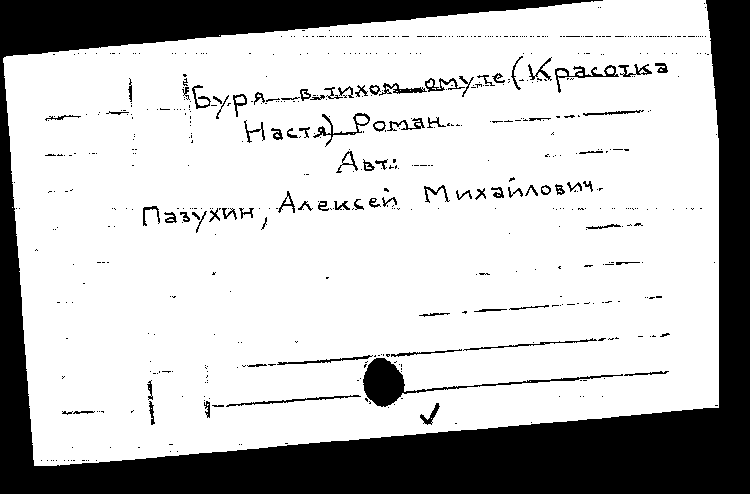 Буря в тихом омуте (Красотка
Настя) Роман.
Авт:
Пазухин, Алексей Михайлович.